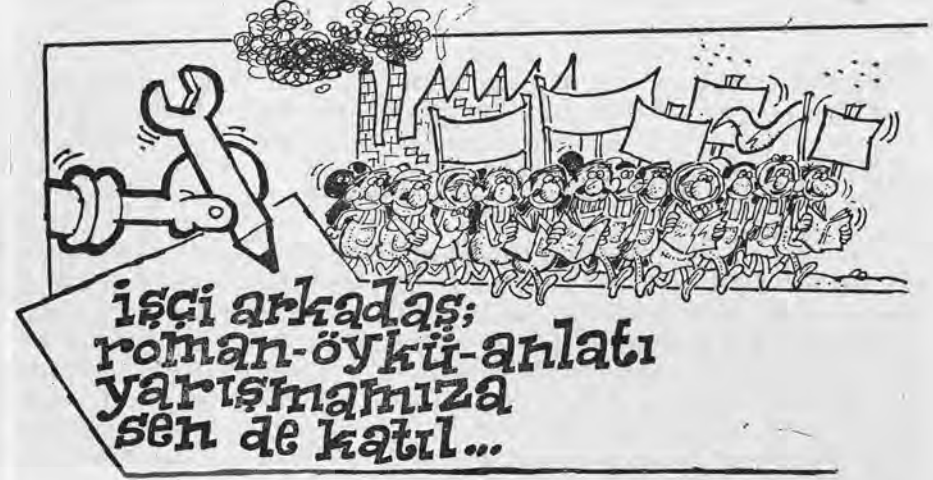 işçi arkadaş;
roman-öykü-anlatı
yarışmamıza
sen de katıl...